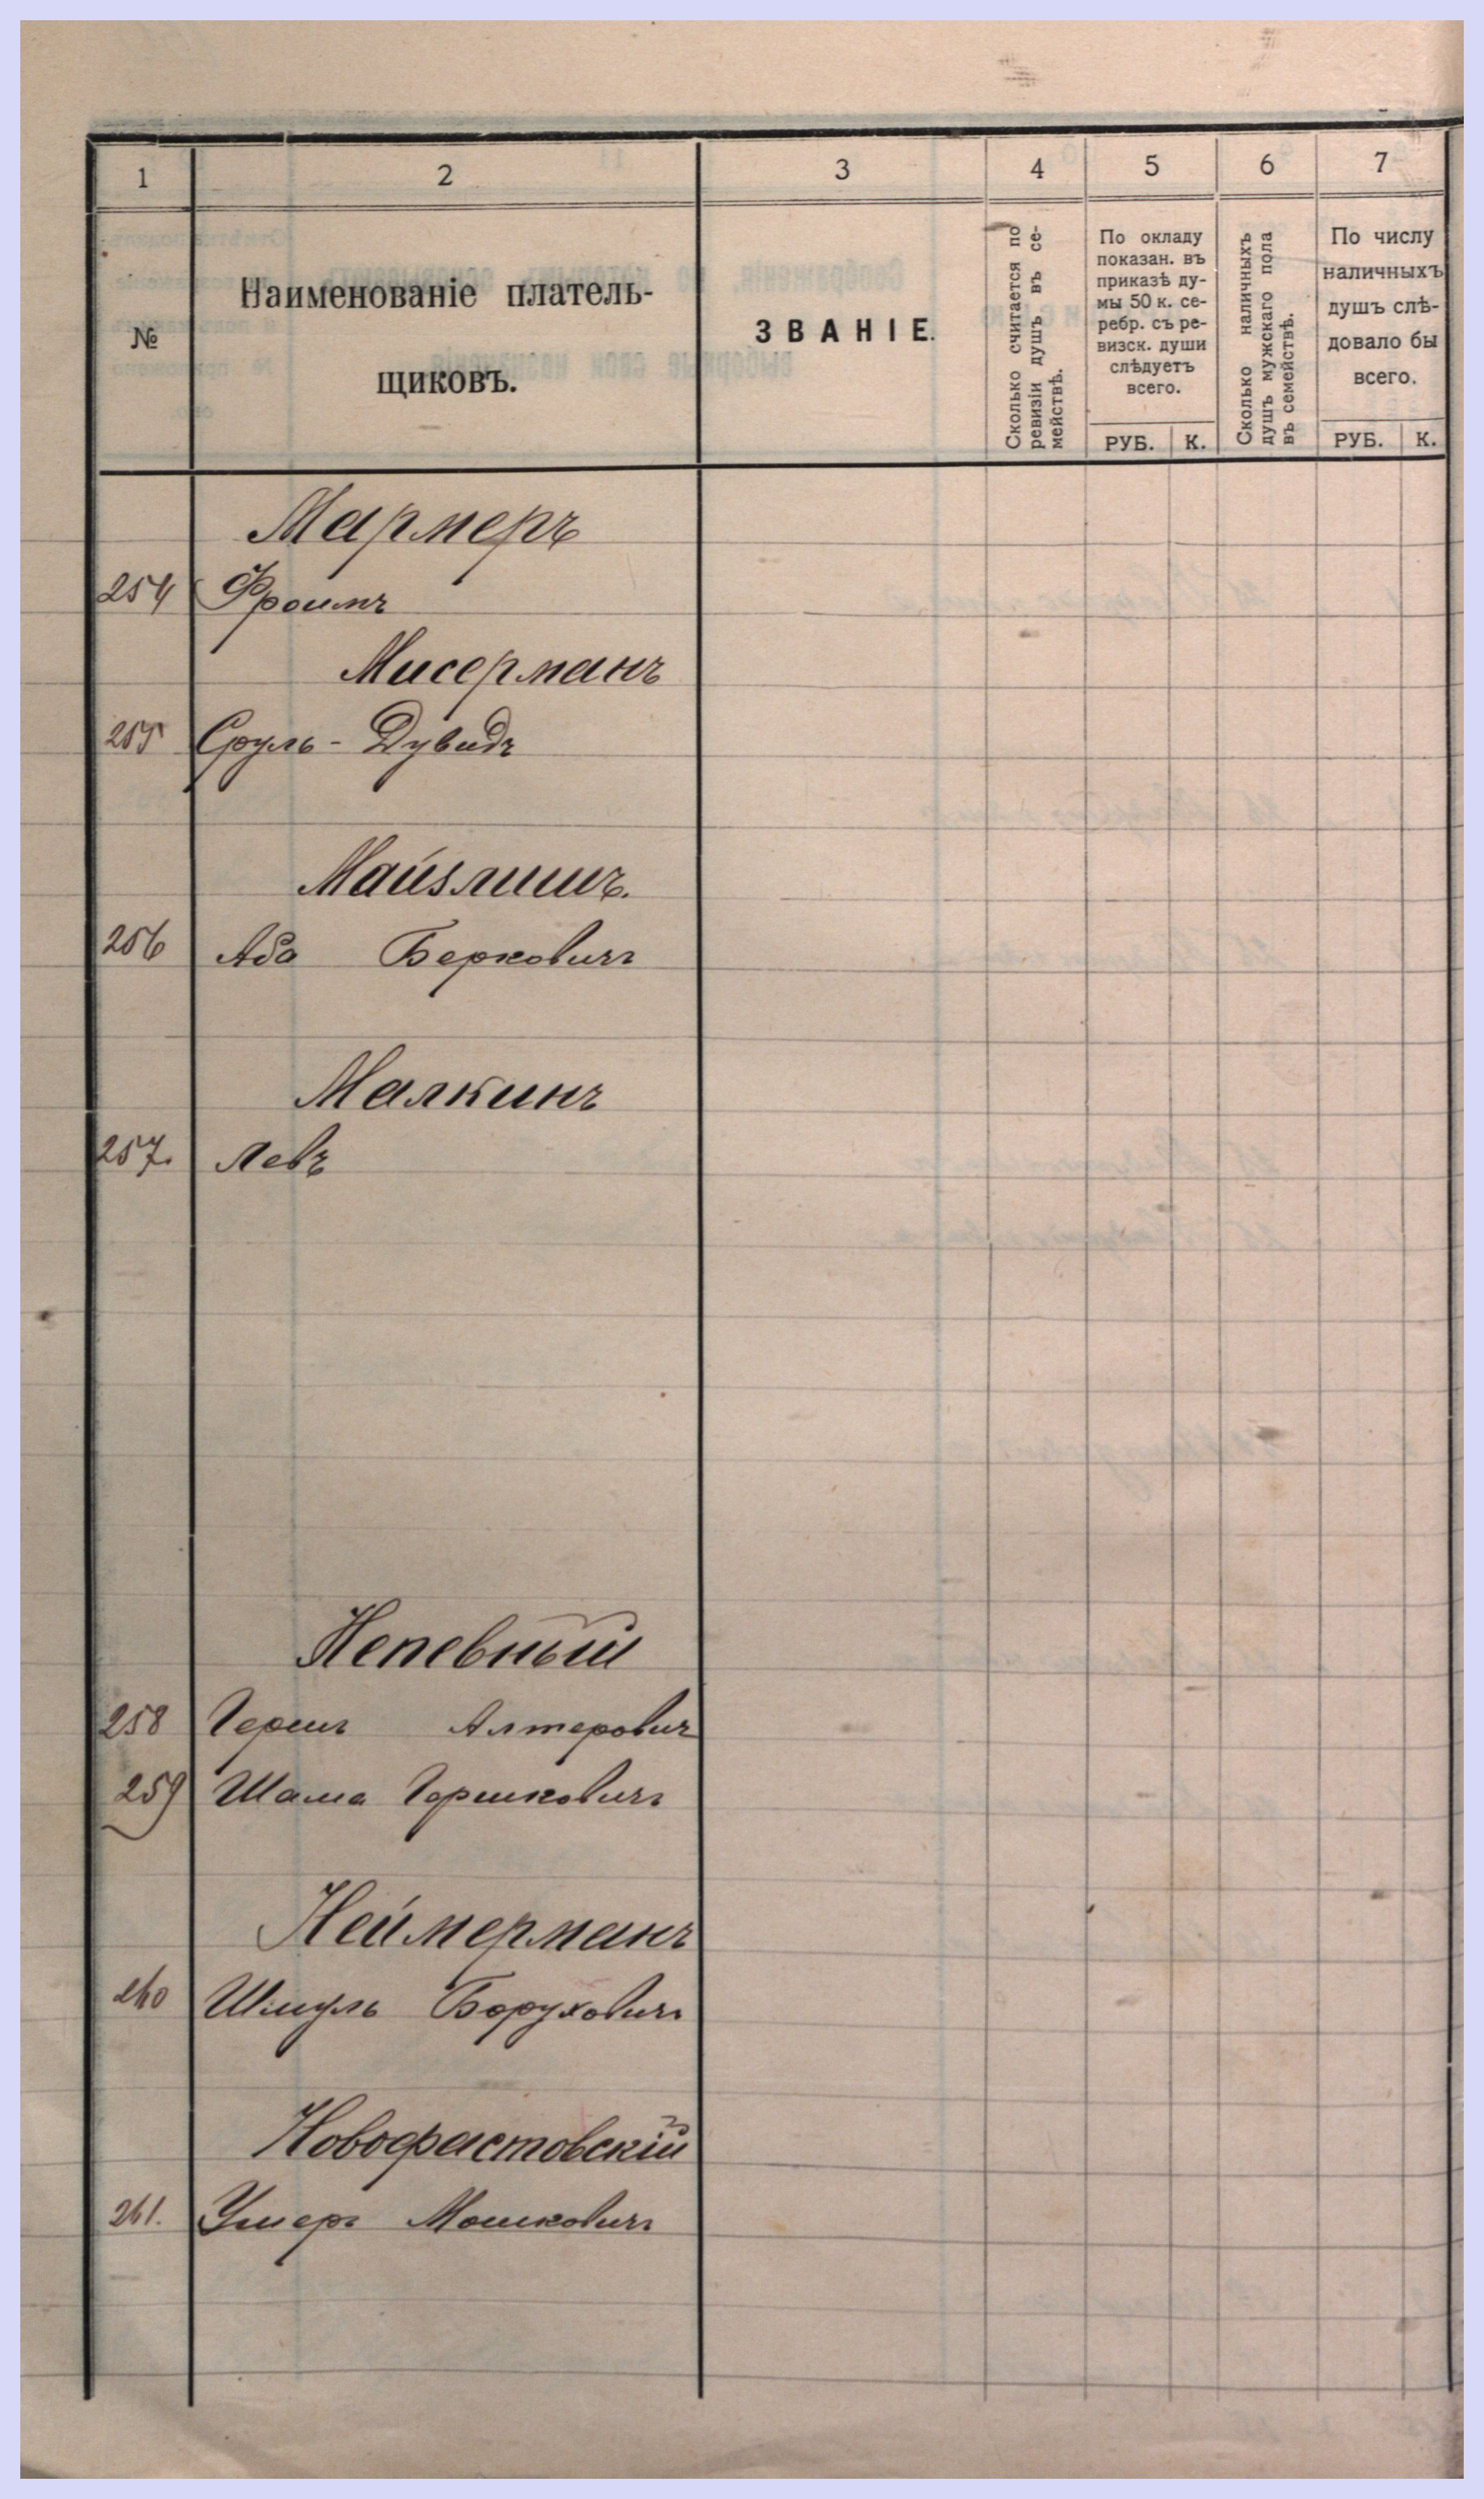 1 2 3 4 5 6 7
№
Наименованіе платель-
щиковъ.
ЗВАНІЕ.
Сколько считается по
ревизіи душъ въ се-
мействѣ.
По окладу
показан. въ
приказѣ ду-
мы 50 к. се-
ребр. съ ре-
визск. души
слѣдуетъ
всего.
РУБ. К.
Сколько наличныхъ
душъ мужскаго пола
въ семействѣ.
По числу
наличныхъ
душъ слѣ-
довало бы
всего.
РУБ. К.
Мармеръ
254 Фроимъ
Мисерманъ
255 Сруль-Дувидъ
Майзлишъ.
256 Аба Берковичъ
Малкинъ
257. Левъ
Непевный
258 Гершъ Алтеровичъ
259 Шама Гершковичъ
Неймерманъ
260 Шмуль Боруховичъ
Новофастовскій
261. Ушеръ Мошковичъ